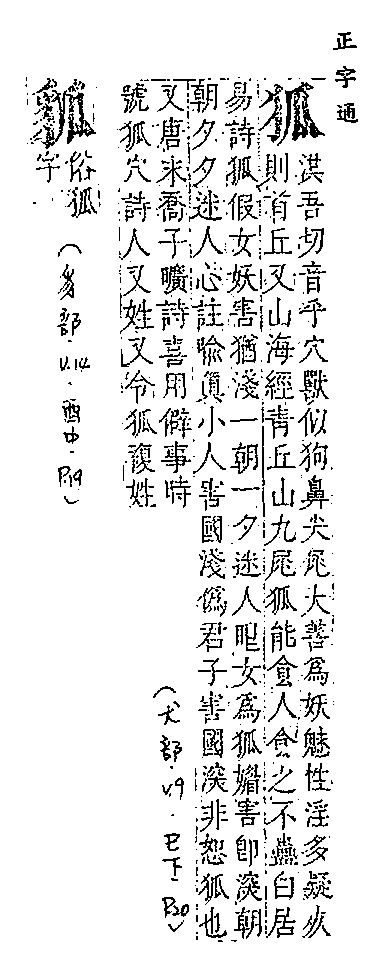 正字通
狐
洪吾切音乎穴獸似狗鼻尖尾大善爲妖魅性淫多疑㱙
則首丘又山海經靑丘山九尾狐能食人食之不蠱白居
易詩狐假女妖害猶淺一朝一夕迷人眼女爲狐媚害卽深朝
朝夕夕迷人心註喩眞小人害國淺僞君子害國深非恕狐也
又唐宋喬子曠詩喜用僻事時
號狐穴詩人又姓又令狐複姓
(犬部.V.9.巳下.P.20)
俗狐
字
(豸部.V.14.酉中.P.19)